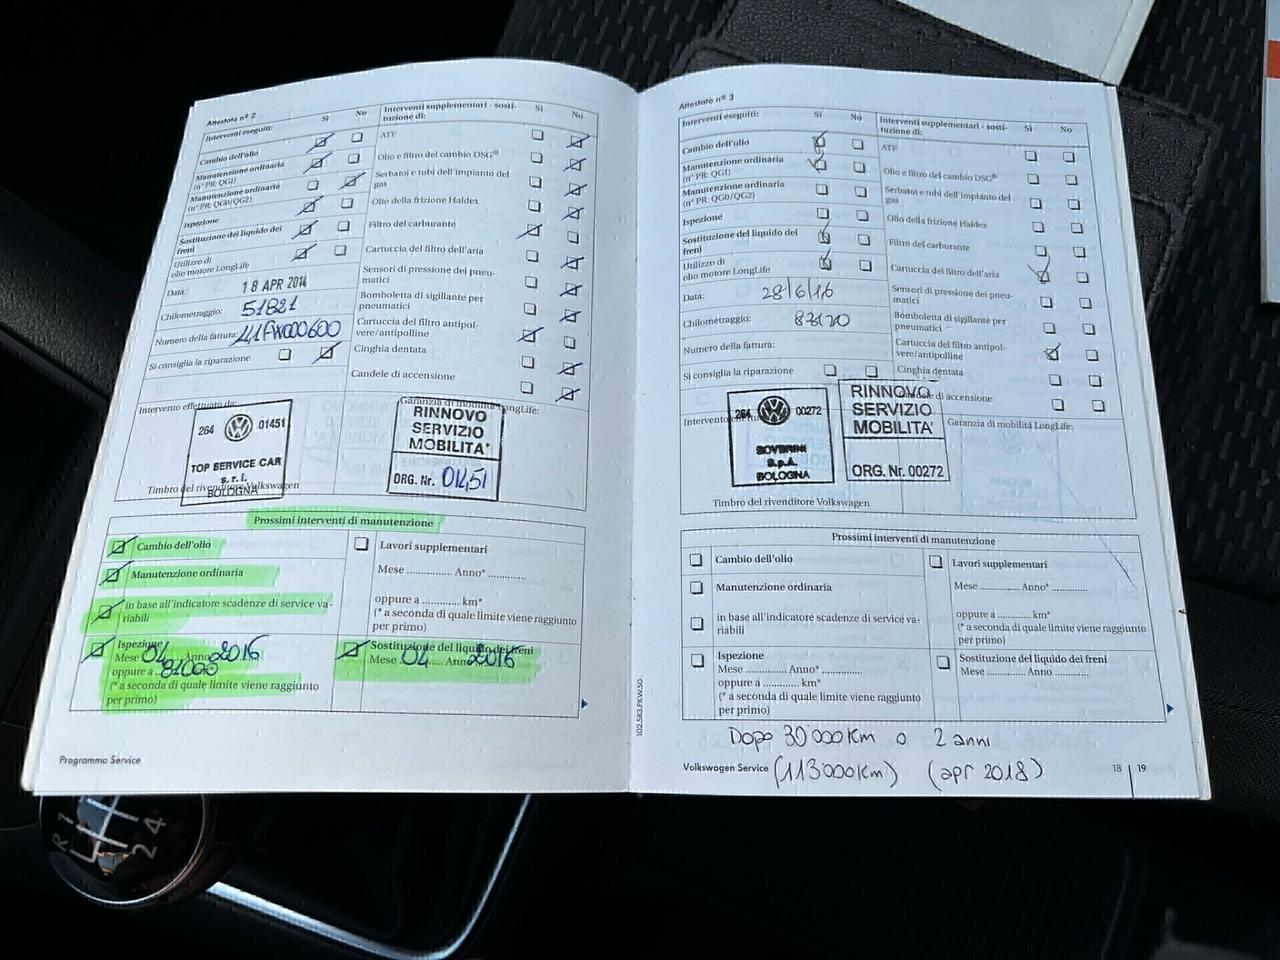 Attestato nº 2
Interventi eseguiti: Sì No
Cambio dell'olio
Manutenzione ordinaria
(nº PR: QG1)
Manutenzione ordinaria
(nº PR: QG0/QG2)
Ispezione
Sostituzione del liquido dei
freni
Utilizzo di
olio motore LongLife
Data: 18 APR 2014
Chilometraggio: 51821
Numero della fattura:
Si consiglia la riparazione
Interventi supplementari - sosti-
tuzione di: Sì No
ATF
Olio e filtro del cambio DSG®
Serbatoi e tubi dell'impianto del
gas
Olio della frizione Haldex
Filtro del carburante
Cartuccia del filtro dell'aria
Sensori di pressione dei pneu-
matici
Bomboletta di sigillante per
pneumatici
Cartuccia del filtro antipol-
vere/antipolline
Cinghia dentata
Candele di accensione
Intervento effettuato da:
264 01451
TOP SERVICE CAR
s.r.l.
BOLOGNA
Timbro del rivenditore Volkswagen
Garanzia di mobilità LongLife:
RINNOVO
SERVIZIO
MOBILITA'
ORG. Nr. 01451
Prossimi interventi di manutenzione
Cambio dell'olio
Manutenzione ordinaria
in base all'indicatore scadenze di service va-
riabili
Ispezione
Mese 04 Anno 2016
oppure a 81000
(* a seconda di quale limite viene raggiunto
per primo)
Lavori supplementari
Mese ............... Anno* .............
oppure a ............ km*
(* a seconda di quale limite viene raggiunto
per primo)
Sostituzione del liquido dei freni
Mese 04 Anno 2016
Programma Service
102.5R3.PKW.50
Attestato nº 3
Interventi eseguiti: Sì No
Cambio dell'olio
Manutenzione ordinaria
(nº PR: QG1)
Manutenzione ordinaria
(nº PR: QG0/QG2)
Ispezione
Sostituzione del liquido dei
freni
Utilizzo di
olio motore LongLife
Data: 28/6/16
Chilometraggio:
Numero della fattura:
Si consiglia la riparazione
Interventi supplementari - sosti-
tuzione di: Sì No
ATF
Olio e filtro del cambio DSG®
Serbatoi e tubi dell'impianto del
gas
Olio della frizione Haldex
Filtro del carburante
Cartuccia del filtro dell'aria
Sensori di pressione dei pneu-
matici
Bomboletta di sigillante per
pneumatici
Cartuccia del filtro antipol-
vere/antipolline
Cinghia dentata
Candele di accensione
264 00272
S.p.A.
BOLOGNA
Timbro del rivenditore Volkswagen
RINNOVO
SERVIZIO
MOBILITA'
ORG. Nr. 00272
Garanzia di mobilità LongLife:
Prossimi interventi di manutenzione
Cambio dell'olio
Manutenzione ordinaria
in base all'indicatore scadenze di service va-
riabili
Ispezione
Mese ............... Anno* .............
oppure a ............ km*
(* a seconda di quale limite viene raggiunto
per primo)
Lavori supplementari
Mese ............... Anno* .............
oppure a ............ km*
(* a seconda di quale limite viene raggiunto
per primo)
Sostituzione del liquido dei freni
Mese ............... Anno .............
Dopo 30'000 Km o 2 anni
(113'000 km) (apr 2018)
Volkswagen Service 18 | 19
R 1
2 4